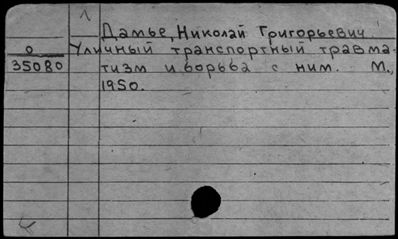 1
Дамье, Николай Григорьевич
о Уличный транспортный травма-
35080 тизм и борьба с ним. М.,
1950.